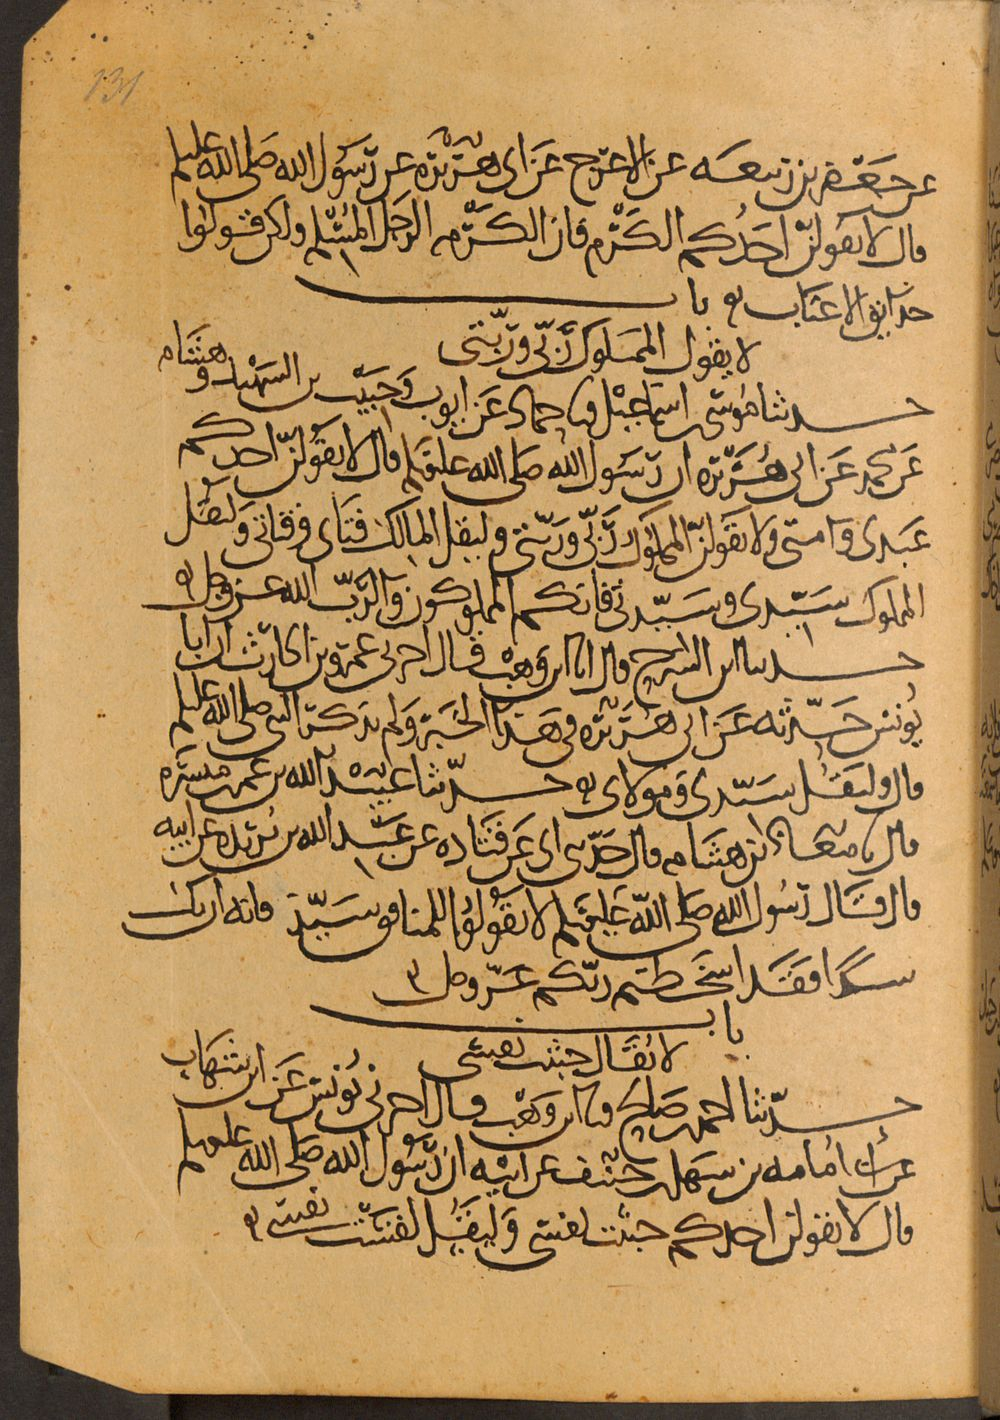 131
عن جعفر بن ربيعه عن الاعرج عن ابى هريره عن رسول الله صلى الله عليه وسلم
قال لا يقولن احدكم الكرم فان الكرم الرجل المسلم ولكن قولوا
حدايق الاعناب ه باب
لا يقول المملوك ربى وربتى
حدثنا موسى بن اسماعيل قثا حماد عن ايوب وحبيب بن الشهيد وهشام
عن محمد عن ابى هريره ان رسول الله صلى الله عليه وسلم قال لا يقولن احدكم
عبدى وامتى ولا يقولن المملوك ربى وربتى وليقل المالك فتاى وفتاتى وليقل
المملوك سيدى وسيدتى فانكم المملوكون والرب الله عز وجل ه
حدثنا ابن السرح قال انا ابن وهب قال اخبرنى عمرو بن الحارث ان ابا
يونس حدثه عن ابى هريره فى هذا الخبر ولم يذكر النبى صلى الله عليه وسلم
قال وليقل سيدى ومولاى ه حدثنا عبيد الله بن عمر بن ميسره
قال نا معاذ بن هشام قال حدثنى ابى عن قتاده عن عبد الله بن بريده عن ابيه
قال قال رسول الله صلى الله عليه وسلم لا تقولوا للمنافق سيد فانه ان يك
سيدا فقد اسخطتم ربكم عز وجل ه
باب
لا يقال خبثت نفسى
حدثنا احمد بن صالح قثا ابن وهب قال اخبرنى يونس عن ابن شهاب
عن ابى امامه بن سهل بن حنيف عن ابيه ان رسول الله صلى الله عليه وسلم
قال لا يقولن احدكم خبثت نفسى وليقل لقست نفسى ه